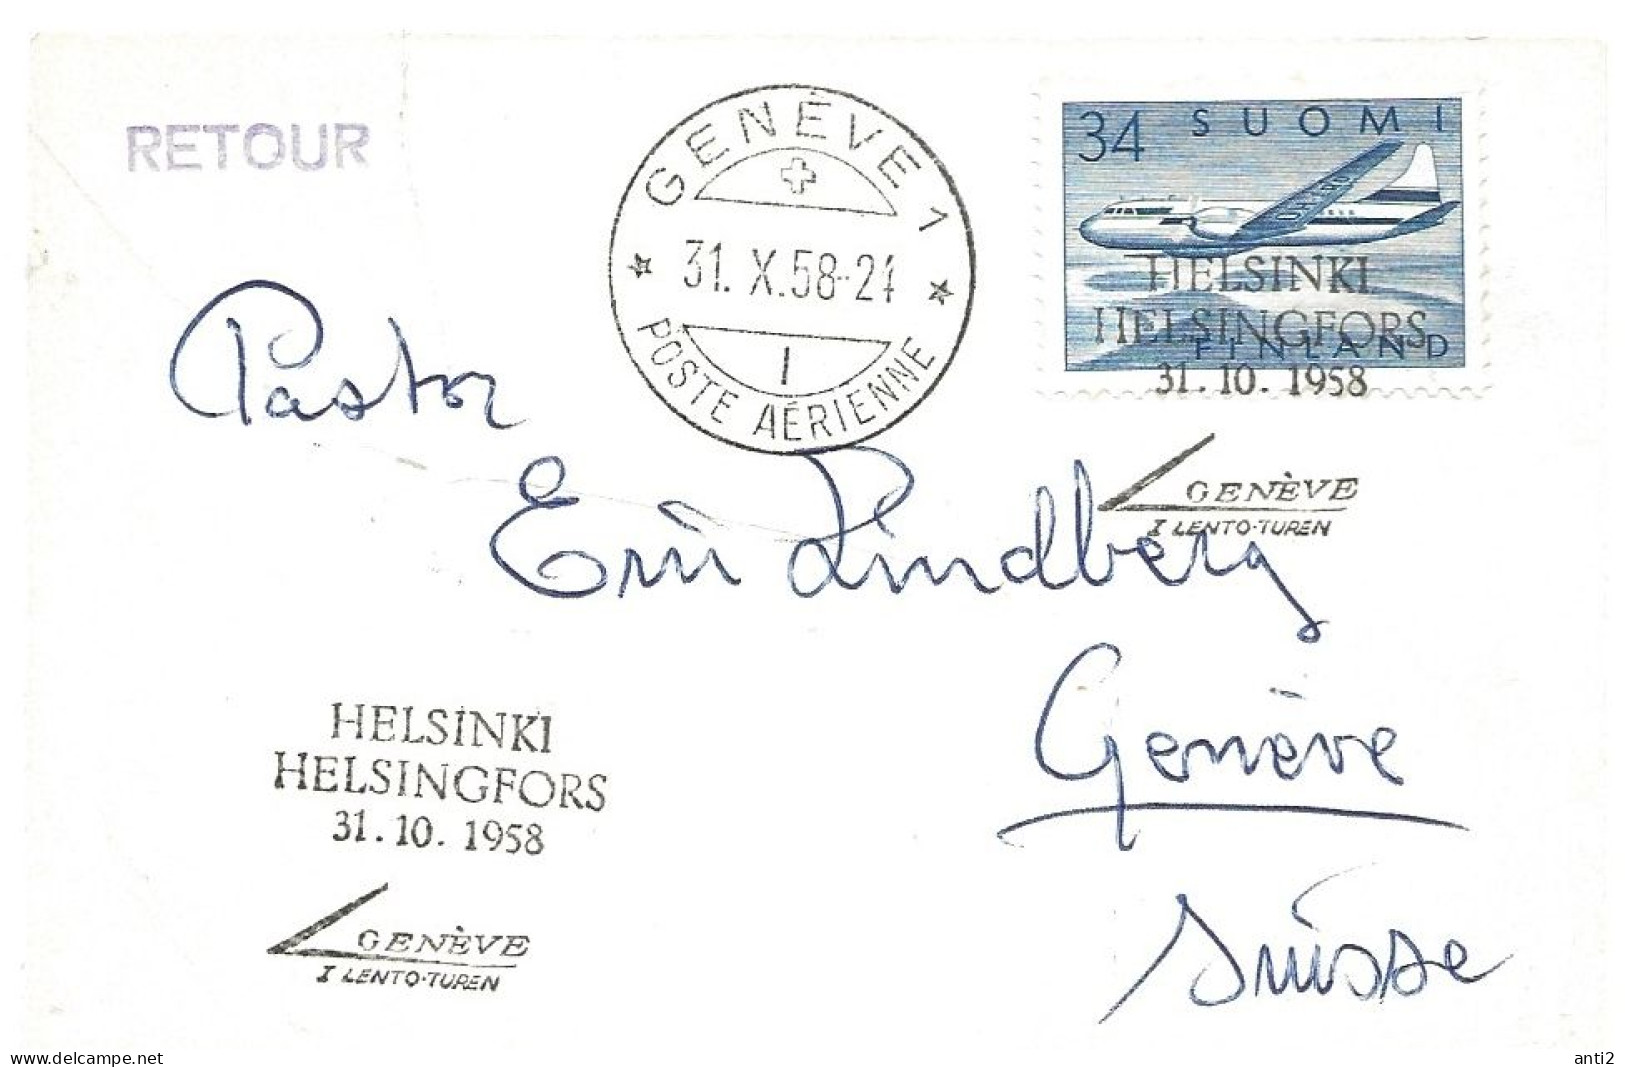 RETOUR
GENÈVE 1
31. X. 58-24
1
POSTE AÉRIENNE
34 SUOMI
FINLAND
HELSINKI
HELSINGFORS
31. 10. 1958
GENÈVE
I LENTO-TUREN
Pastor
Eric Lindberg
Genève
Suisse
HELSINKI
HELSINGFORS
31. 10. 1958
GENÈVE
I LENTO-TUREN
www.delcampe.net
anti2